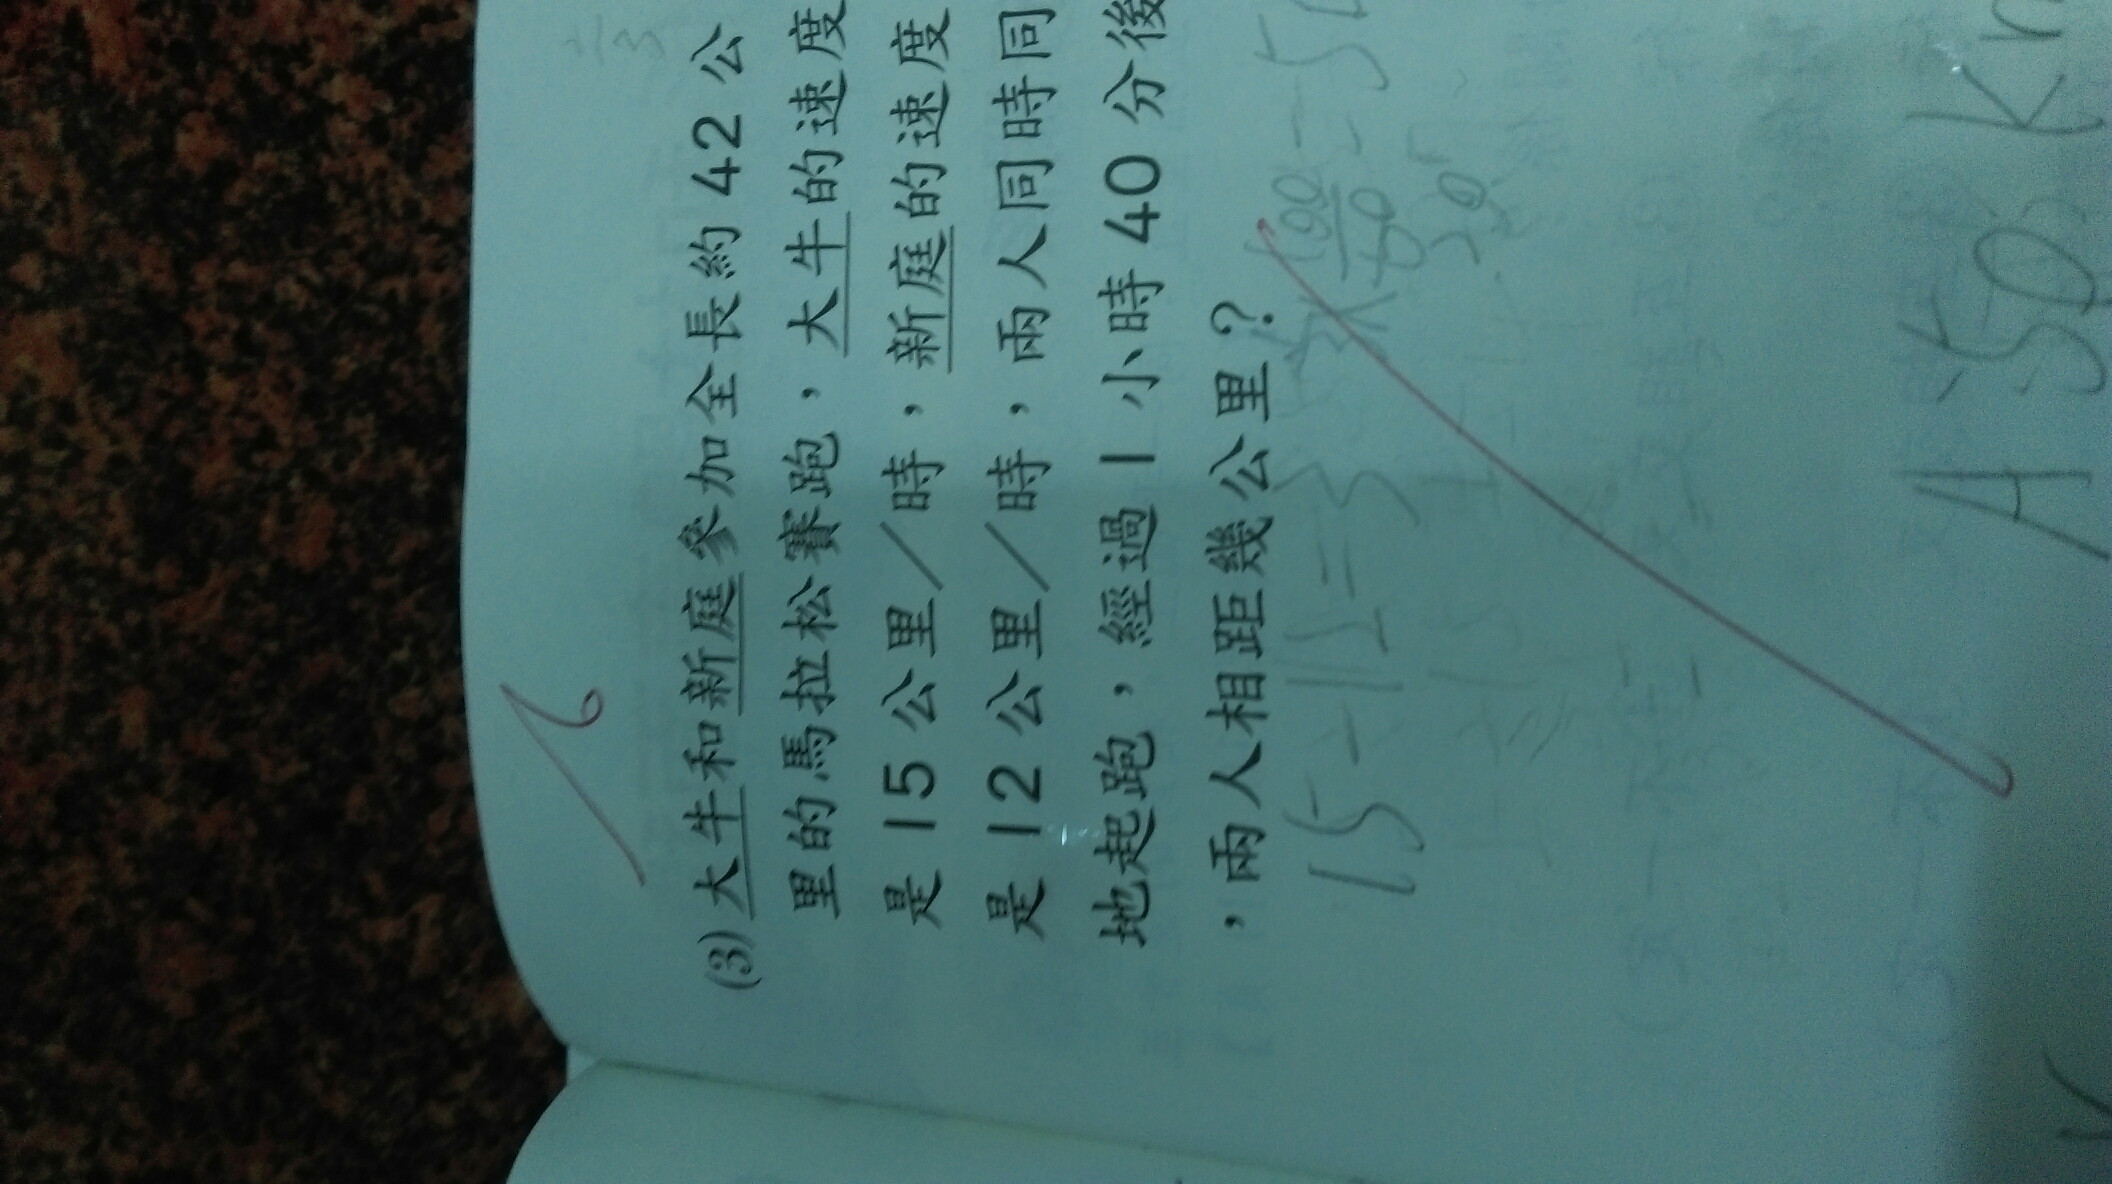 (3) 大牛和新庭參加全長約 42 公
里的馬拉松賽跑，大牛的速度
是 15 公里／時，新庭的速度
是 12 公里／時，兩人同時同
地起跑，經過 1 小時 40 分後
，兩人相距幾公里？
15-12=3
100
60
A 50 km